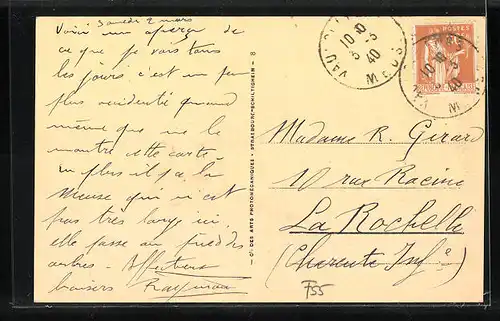 Samedi 2 mars
Voici un aperçu de
ce que je vois tous
les jours c'est un peu
plus accidenté quand
même que ne le
montre cette carte
en plus il y a la
Meuse qui n'est
pas très large ici
elle passe au pied des
arbres - Affectueux
baisers
Cie DES ARTS PHOTOMÉCANIQUES - STRASBOURG-SCHILTIGHEIM - 8
10 10
3 - 3
40
POSTES
10 10
3
40
Madame R. Girard
10 rue Racine
La Rochelle
(Charente Infre)
F55